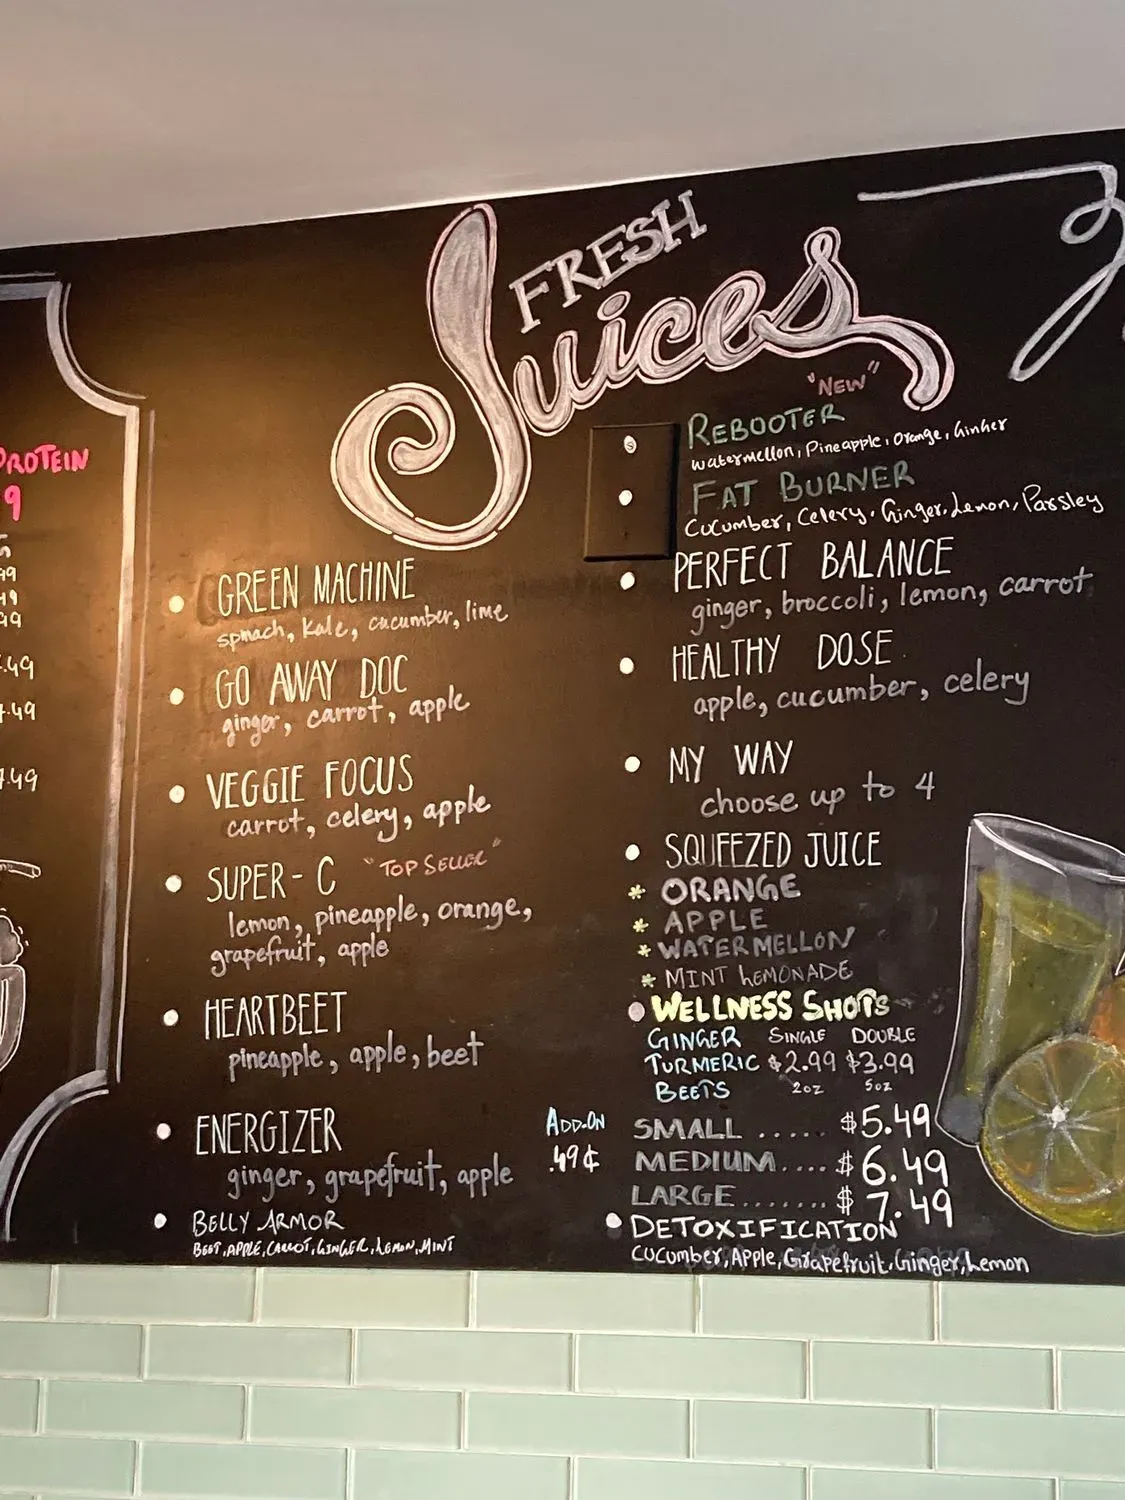 PROTEIN
9
99
49
99
.49
.49
.49
FRESH
Juices
GREEN MACHINE
spinach, kale, cucumber, lime
GO AWAY DOC
ginger, carrot, apple
VEGGIE FOCUS
carrot, celery, apple
SUPER-C "TOP SELLER"
lemon, pineapple, orange,
grapefruit, apple
HEARTBEET
pineapple, apple, beet
ENERGIZER
ginger, grapefruit, apple
BELLY ARMOR
BEET, APPLE, CARROT, GINGER, LEMON, MINT
ADD-ON
.49¢
"NEW"
REBOOTER
Watermellon, Pineapple, Orange, Ginher
FAT BURNER
Cucumber, Celery, Ginger, Lemon, Parsley
PERFECT BALANCE
ginger, broccoli, lemon, carrot
HEALTHY DOSE
apple, cucumber, celery
MY WAY
choose up to 4
SQUEEZED JUICE
* ORANGE
* APPLE
* WATERMELLON
* MINT LEMONADE
WELLNESS SHOTS
GINGER SINGLE DOUBLE
TURMERIC $2.99 $3.99
BEETS 2oz 5oz
SMALL ..... $5.49
MEDIUM.... $6.49
LARGE....... $7.49
DETOXIFICATION
Cucumber, Apple, Grapefruit, Ginger, Lemon